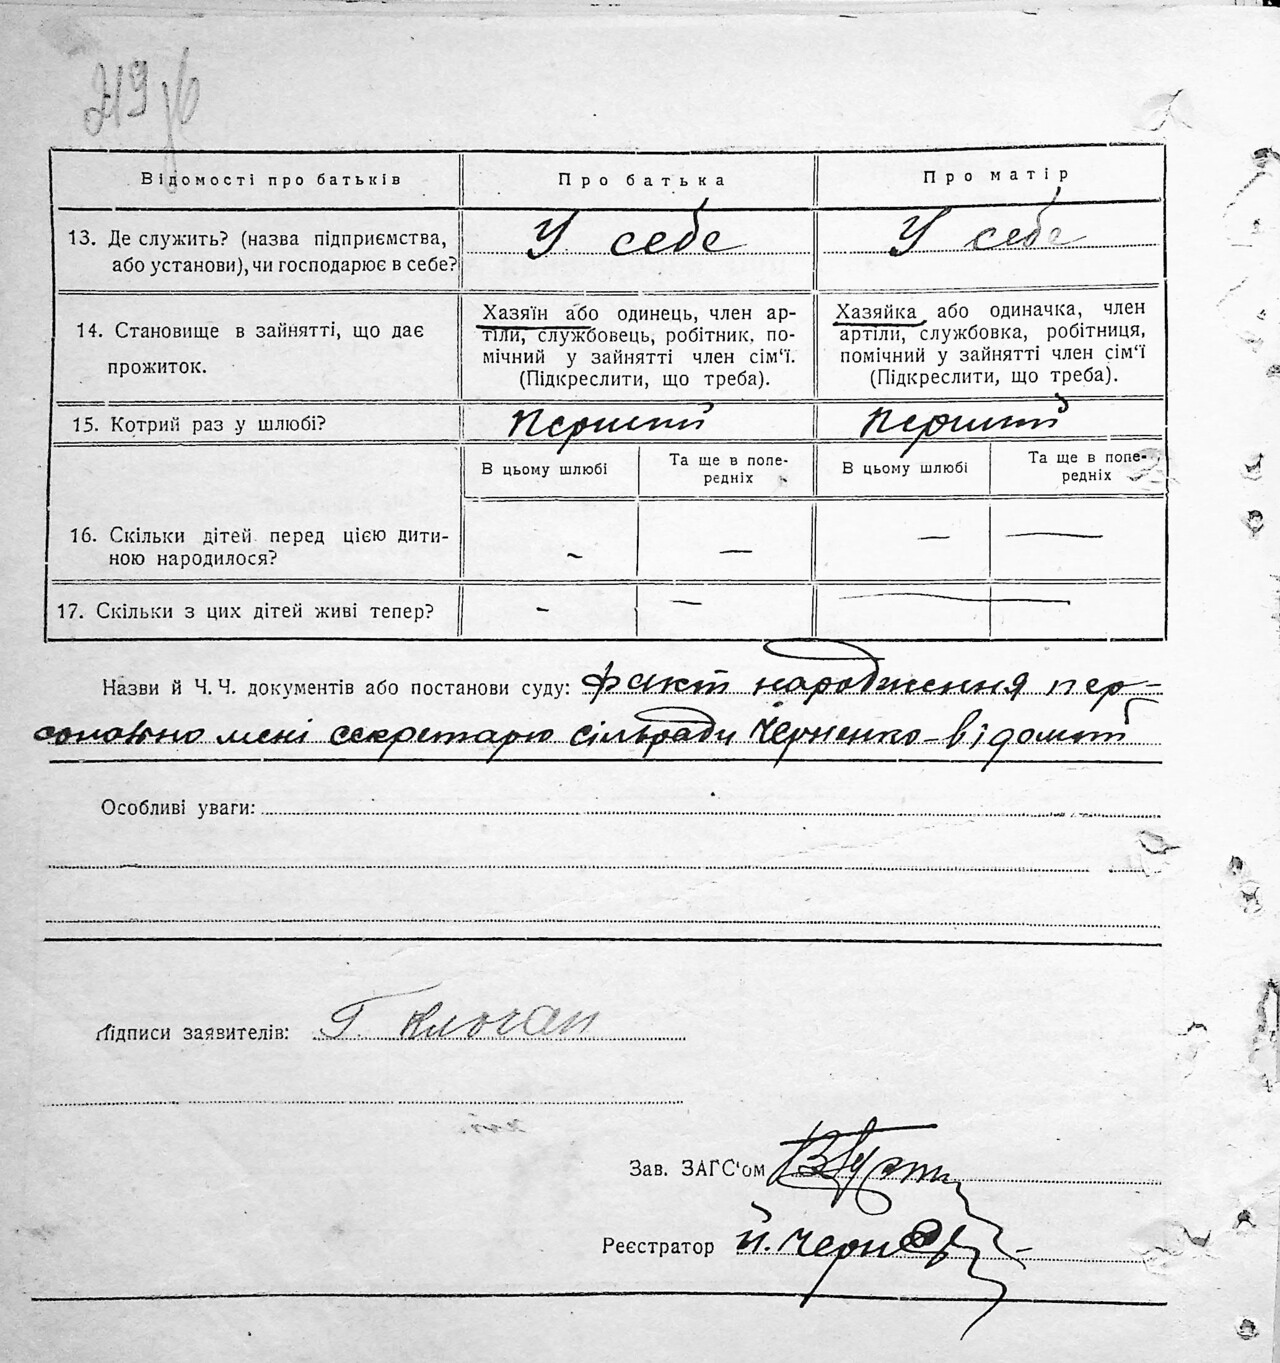 219
Відомості про батьків
Про батька
Про матір
13. Де служить? (назва підприємства,
або установи), чи господарює в себе?
У себе
У себе
14. Становище в зайнятті, що дає
прожиток.
Хазяїн або одинець, член ар-
тіли, службовець, робітник, по-
мічний у зайнятті член сім‘ї.
(Підкреслити, що треба).
Хазяйка або одиначка, член
артіли, службовка, робітниця,
помічний у зайнятті член сім‘ї
(Підкреслити, що треба).
15. Котрий раз у шлюбі?
Перший
Перший
В цьому шлюбі
Та ще в попе-
редніх
В цьому шлюбі
Та ще в попе-
редніх
16. Скільки дітей перед цією дити-
ною народилося?
–
—
—
—
17. Скільки з цих дітей живі тепер?
–
—
—
Назви й Ч. Ч. документів або постанови суду: факт народження пер-
сонально мені секретарю сільради Черненко-відомий
Особливі уваги:
Підписи заявителів: Г. Клочан
Зав. ЗАГС‘ом
Реєстратор